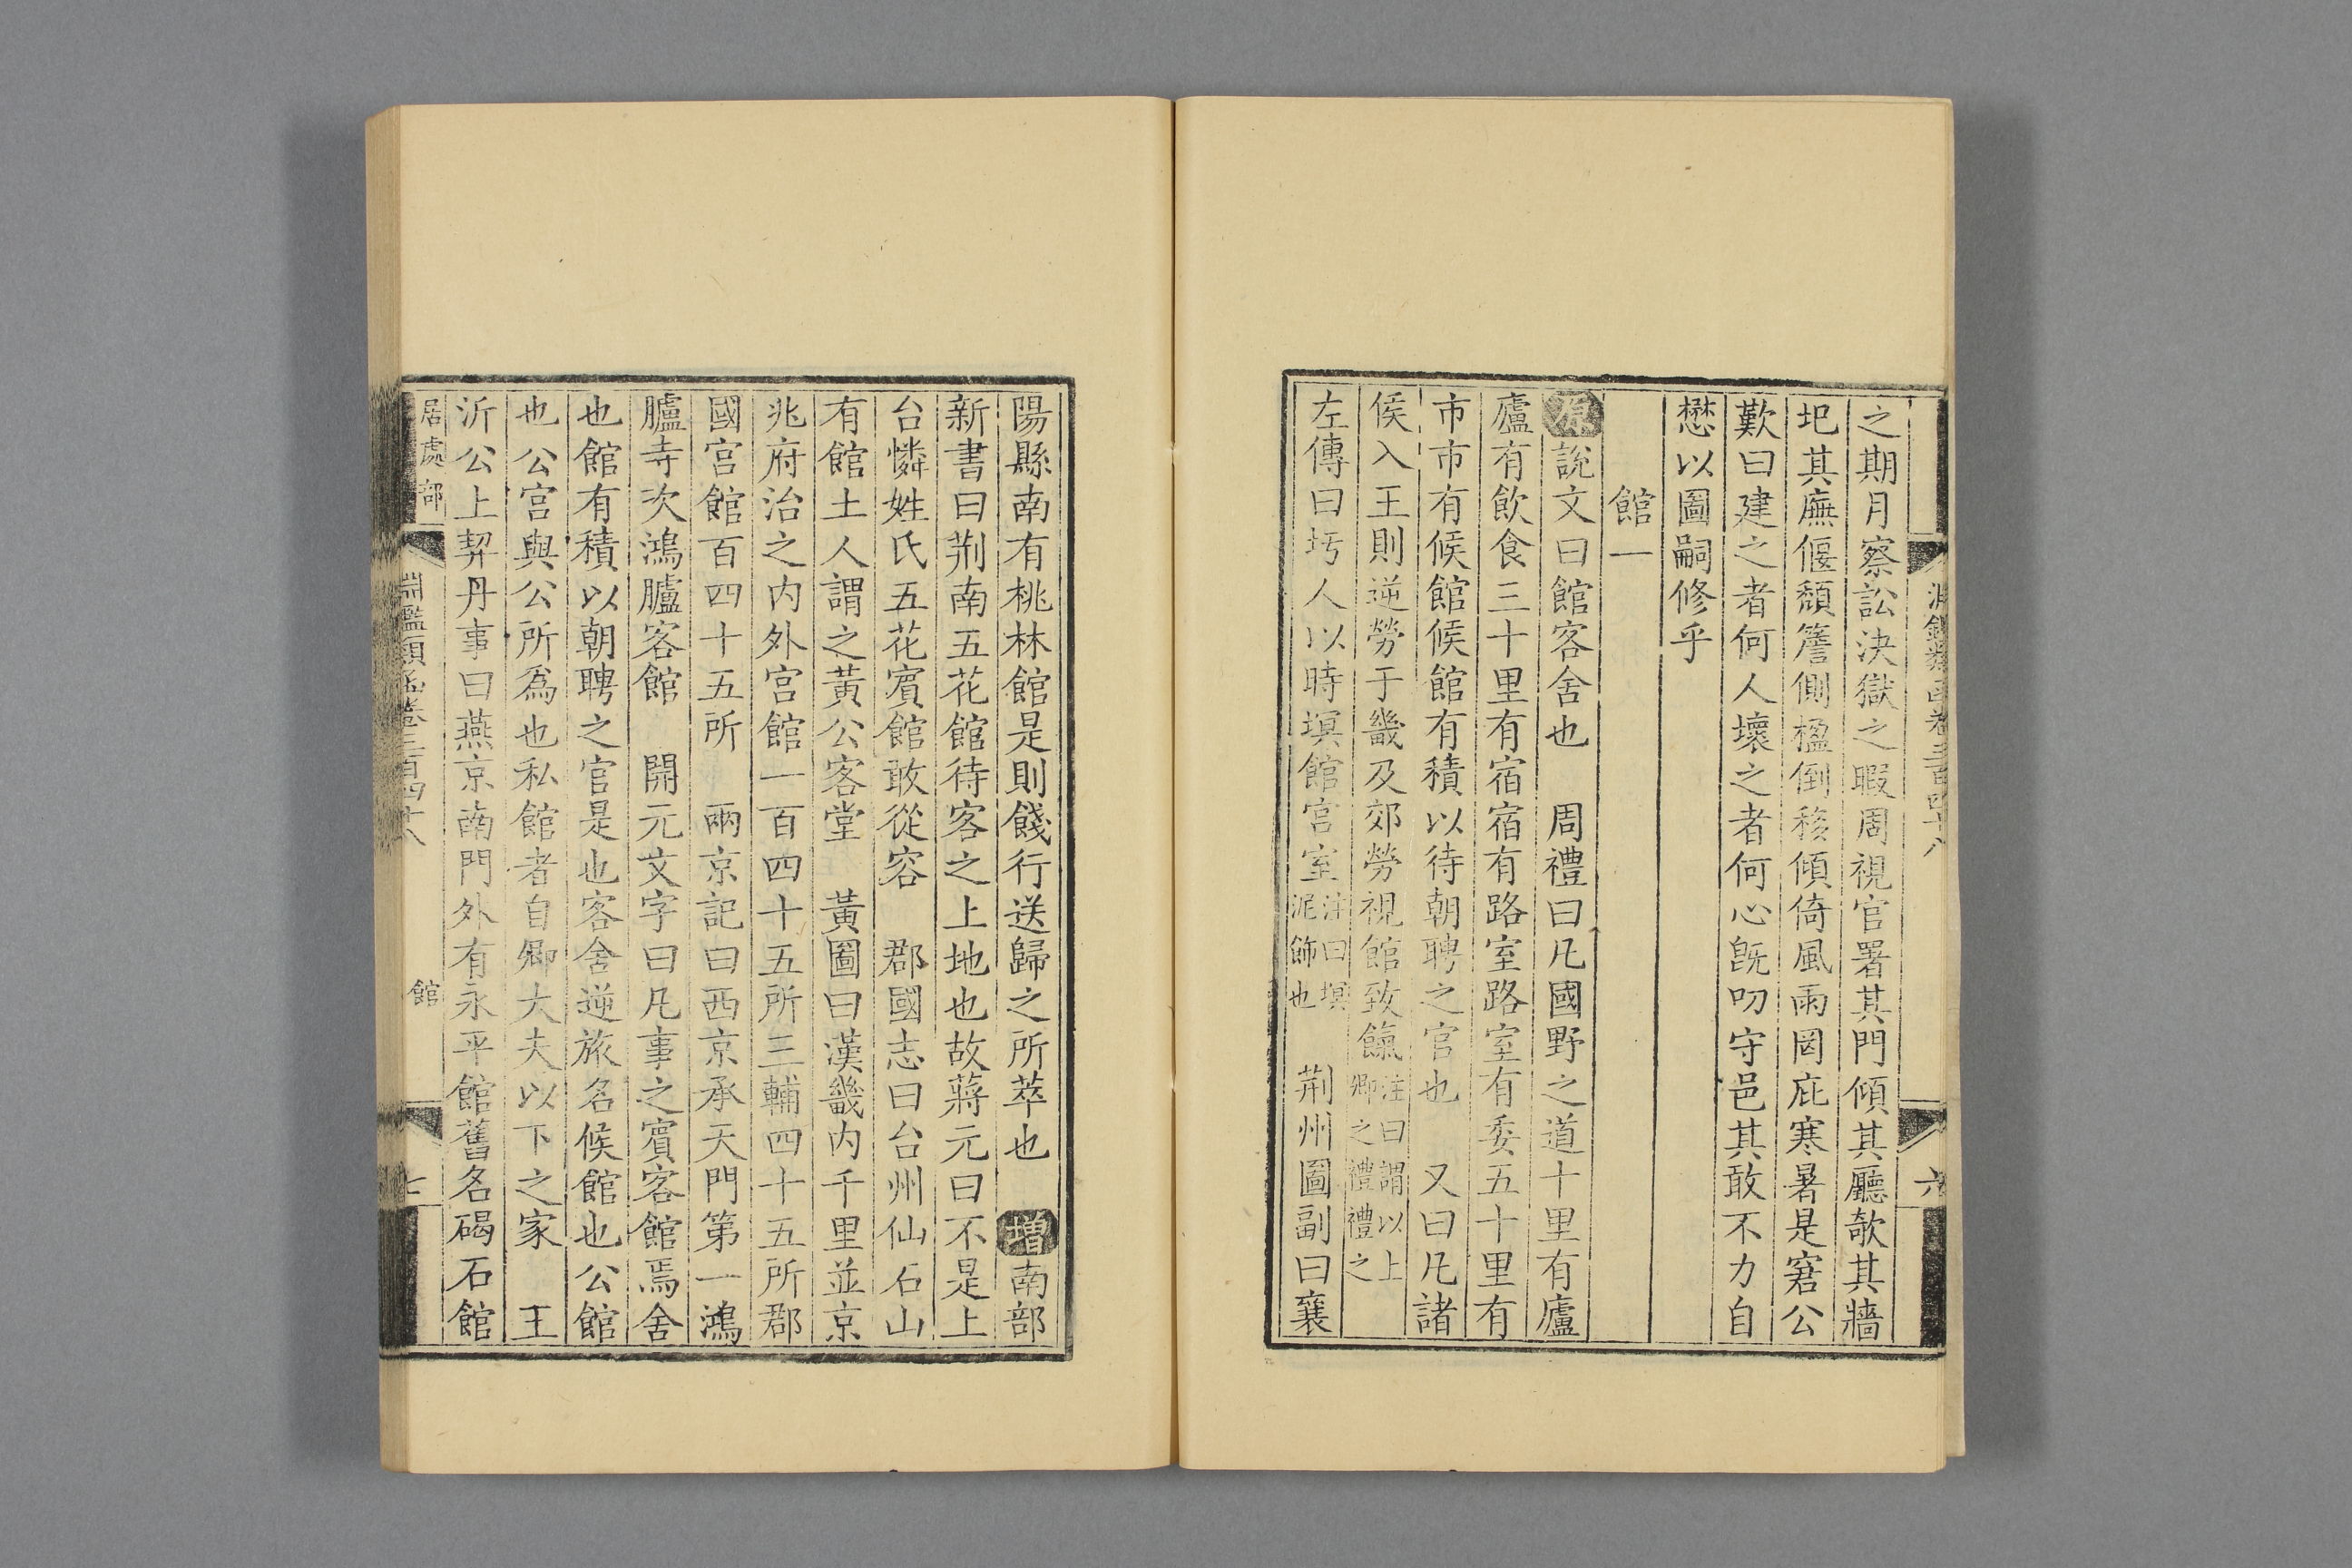 淵鑑類函卷三百四十八
六
之期月察訟決獄之暇周視官署其門傾其廳欹其牆
圯其廡偃頽簷側楹倒移傾倚風雨罔庇寒暑是窘公
歎曰建之者何人壞之者何心旣叨守邑其敢不力自
懋以圖嗣修乎
館一
原說文曰館客舍也　周禮曰凡國野之道十里有廬
廬有飲食三十里有宿宿有路室路室有委五十里有
市市有候館候館有積以待朝聘之官也　又曰凡諸
侯入王則逆勞于畿及郊勞視館致餼注曰謂以上卿之禮禮之
左傳曰圬人以時塓館宮室注曰塓泥飾也　荆州圖副曰襄
陽縣南有桃林館是則餞行送歸之所萃也　增南部
新書曰荆南五花館待客之上地也故蔣元曰不是上
台憐姓氏五花賓館敢從容　郡國志曰台州仙石山
有館土人謂之黃公客堂　黃圖曰漢畿內千里並京
兆府治之內外宮館一百四十五所三輔四十五所郡
國宮館百四十五所　兩京記曰西京承天門第一鴻
臚寺次鴻臚客館　開元文字曰凡事之賓客館焉舍
也館有積以朝聘之官是也客舍逆旅名候館也公館
也公宮與公所爲也私館者自卿大夫以下之家　王
沂公上契丹事曰燕京南門外有永平館舊名碣石館
居處部
淵鑑類函卷三百四十八
館
七